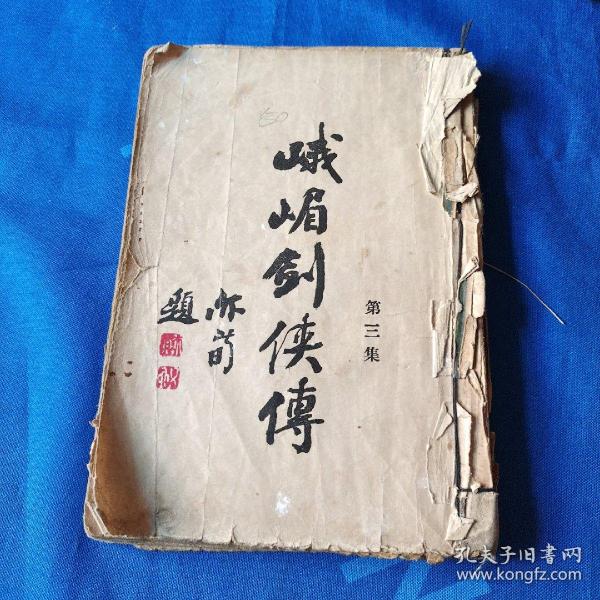 峨嵋劍俠傳
第三集
題
孔夫子旧书网
www.kongfz.com